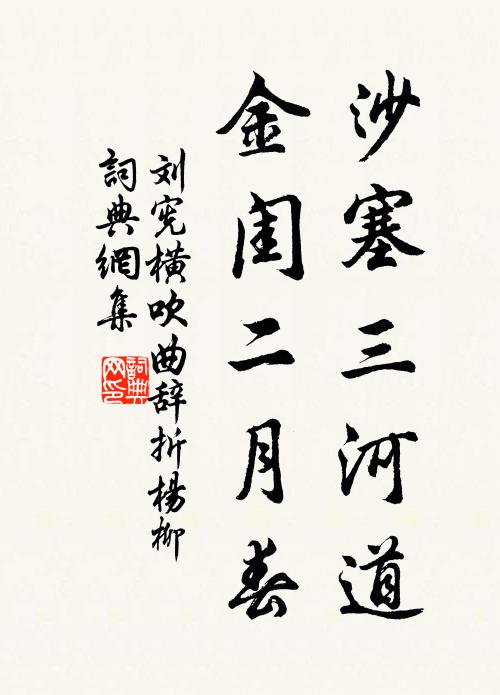 沙塞三河道
金闺二月春
刘宪横吹曲辞折杨柳
詞典網集
詞典网印